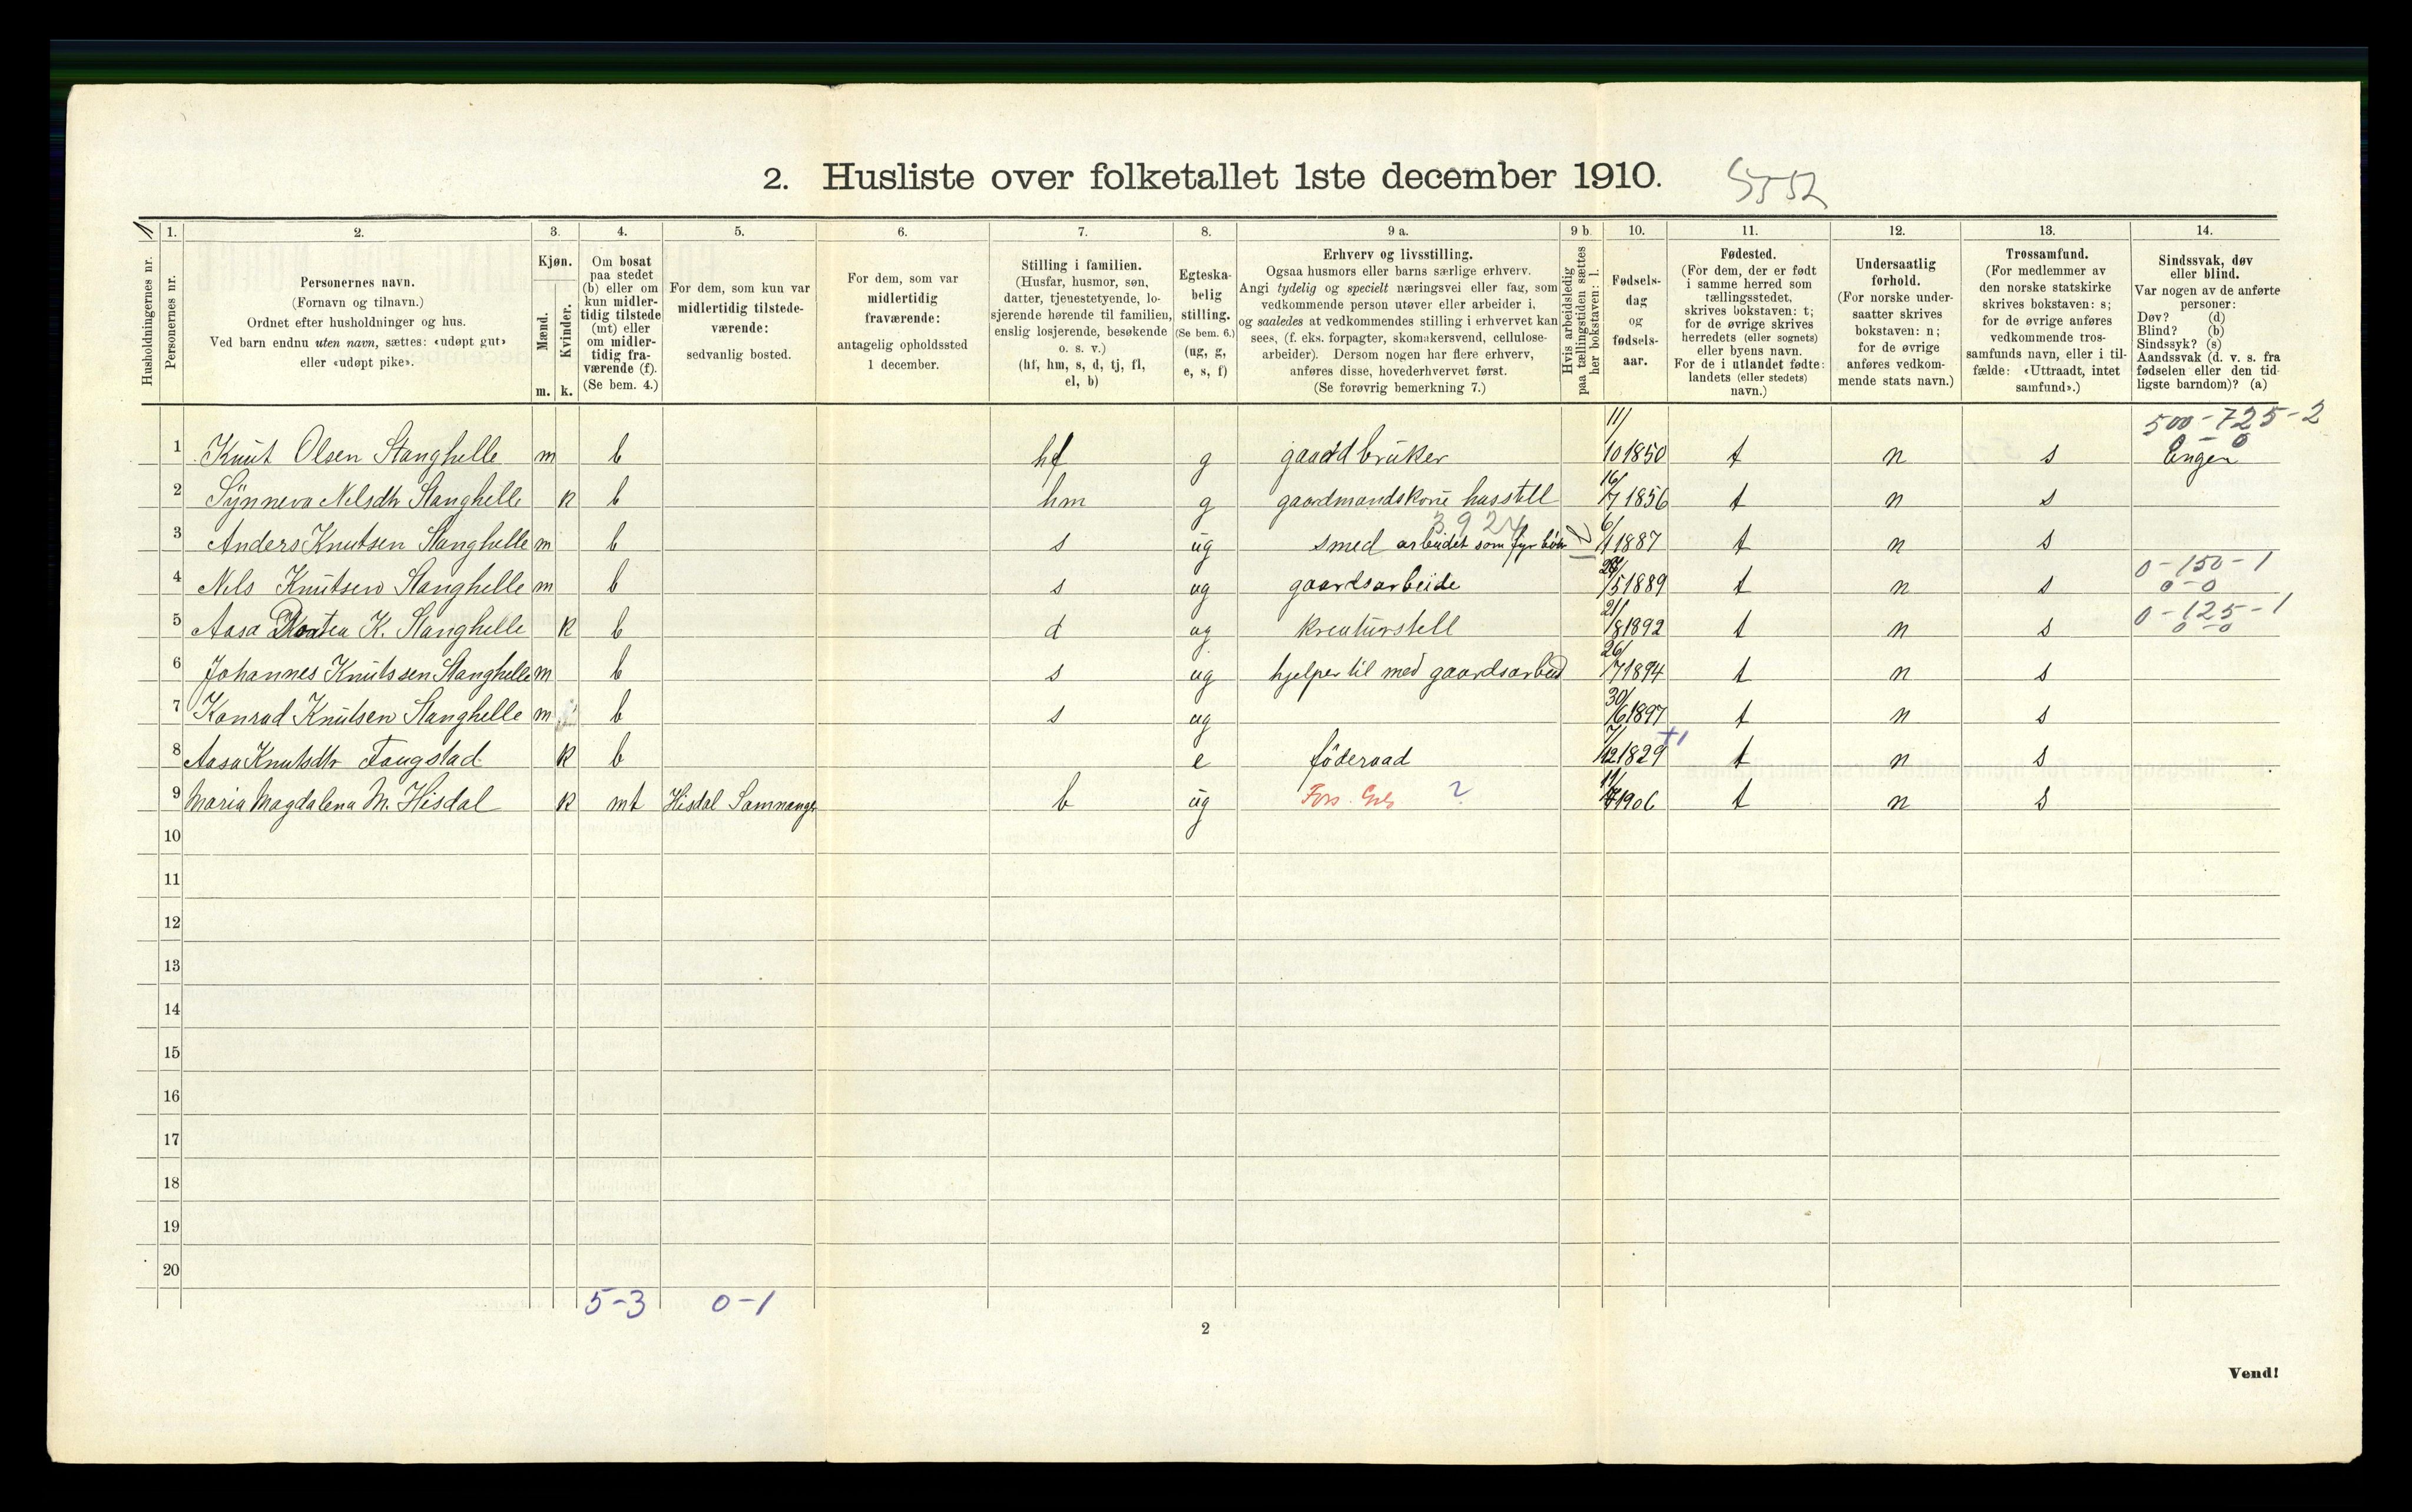 2. Husliste over folketallet 1ste december 1910.
5552
Husholdningernes nr.
1.
Personernes nr.
2.
Personernes navn.
(Fornavn og tilnavn.)
Ordnet efter husholdninger og hus.
Ved barn endnu uten navn, sættes: «udøpt gut»
eller «udøpt pike».
3.
Kjøn.
Mænd.
Kvinder.
m. k.
4.
Om bosat
paa stedet
(b) eller om
kun midler-
tidig tilstede
(mt) eller
om midler-
tidig fra-
værende (f).
(Se bem. 4.)
5.
For dem, som kun var
midlertidig tilstede-
værende:
sedvanlig bosted.
6.
For dem, som var
midlertidig
fraværende:
antagelig opholdssted
1 december.
7.
Stilling i familien.
(Husfar, husmor, søn,
datter, tjenestetyende, lo-
sjerende hørende til familien,
enslig losjerende, besøkende
o. s. v.)
(hf, hm, s, d, tj, fl,
el, b)
8.
Egteska-
belig
stilling.
(Se bem. 6.)
(ug, g,
e, s, f)
9 a.
Erhverv og livsstilling.
Ogsaa husmors eller barns særlige erhverv.
Angi tydelig og specielt næringsvei eller fag, som
vedkommende person utøver eller arbeider i,
og saaledes at vedkommendes stilling i erhvervet kan
sees, (f. eks. forpagter, skomakersvend, cellulose-
arbeider). Dersom nogen har flere erhverv,
anføres disse, hovederhvervet først.
(Se forøvrig bemerkning 7.)
9 b.
Hvis arbeidsledig
paa tællingstiden sættes
her bokstaven: l.
10.
Fødsels-
dag
og
fødsels-
aar.
11.
Fødested.
(For dem, der er født
i samme herred som
tællingsstedet,
skrives bokstaven: t;
for de øvrige skrives
herredets (eller sognets)
eller byens navn.
For de i utlandet fødte:
landets (eller stedets)
navn.)
12.
Undersaatlig
forhold.
(For norske under-
saatter skrives
bokstaven: n;
for de øvrige
anføres vedkom-
mende stats navn.)
13.
Trossamfund.
(For medlemmer av
den norske statskirke
skrives bokstaven: s;
for de øvrige anføres
vedkommende tros-
samfunds navn, eller i til-
fælde: «Uttraadt, intet
samfund».)
14.
Sindssvak, døv
eller blind.
Var nogen av de anførte
personer:
Døv? (d)
Blind? (b)
Sindssyk? (s)
Aandssvak (d. v. s. fra
fødselen eller den tid-
ligste barndom)? (a)
500-725-2
0-0
1 Knut Olsen Stanghelle m b hf g gaardbruker 11/10 1850 t n s Engen
2 Synneva Nelsdtr Stanghelle k b hm g gaardmandskone husstell 16/7 1856 t n s
3924
3 Anders Knutsen Stanghelle m b s ug smed arbeidet som fyrbøter l 6/1 1887 t n s
0-150-1
4 Nels Knutsen Stanghelle m b s ug gaardsarbeide /5 1889 t n s 0-0
0-125-1
5 Aasa K. Stanghelle k b d ug kreaturstell 21/8 1892 t n s 0-0
6 Johannes Knutssen Stanghelle m b s ug hjelper til med gaardsarbeid 26/7 1894 t n s
7 Konrad Knutsen Stanghelle m b s ug 30/6 1897 t n s
+1
8 Aasa Knutsdtr Fangstad k b e föderaad 7/12 1829 t n s
9 Maria Magdalena M. Hisdal k mt Hisdal Samnanger b ug Fors. ? 1906 t n s
10
11
12
13
14
15
16
17
18
19
20
5-3 0-1
2
Vend!